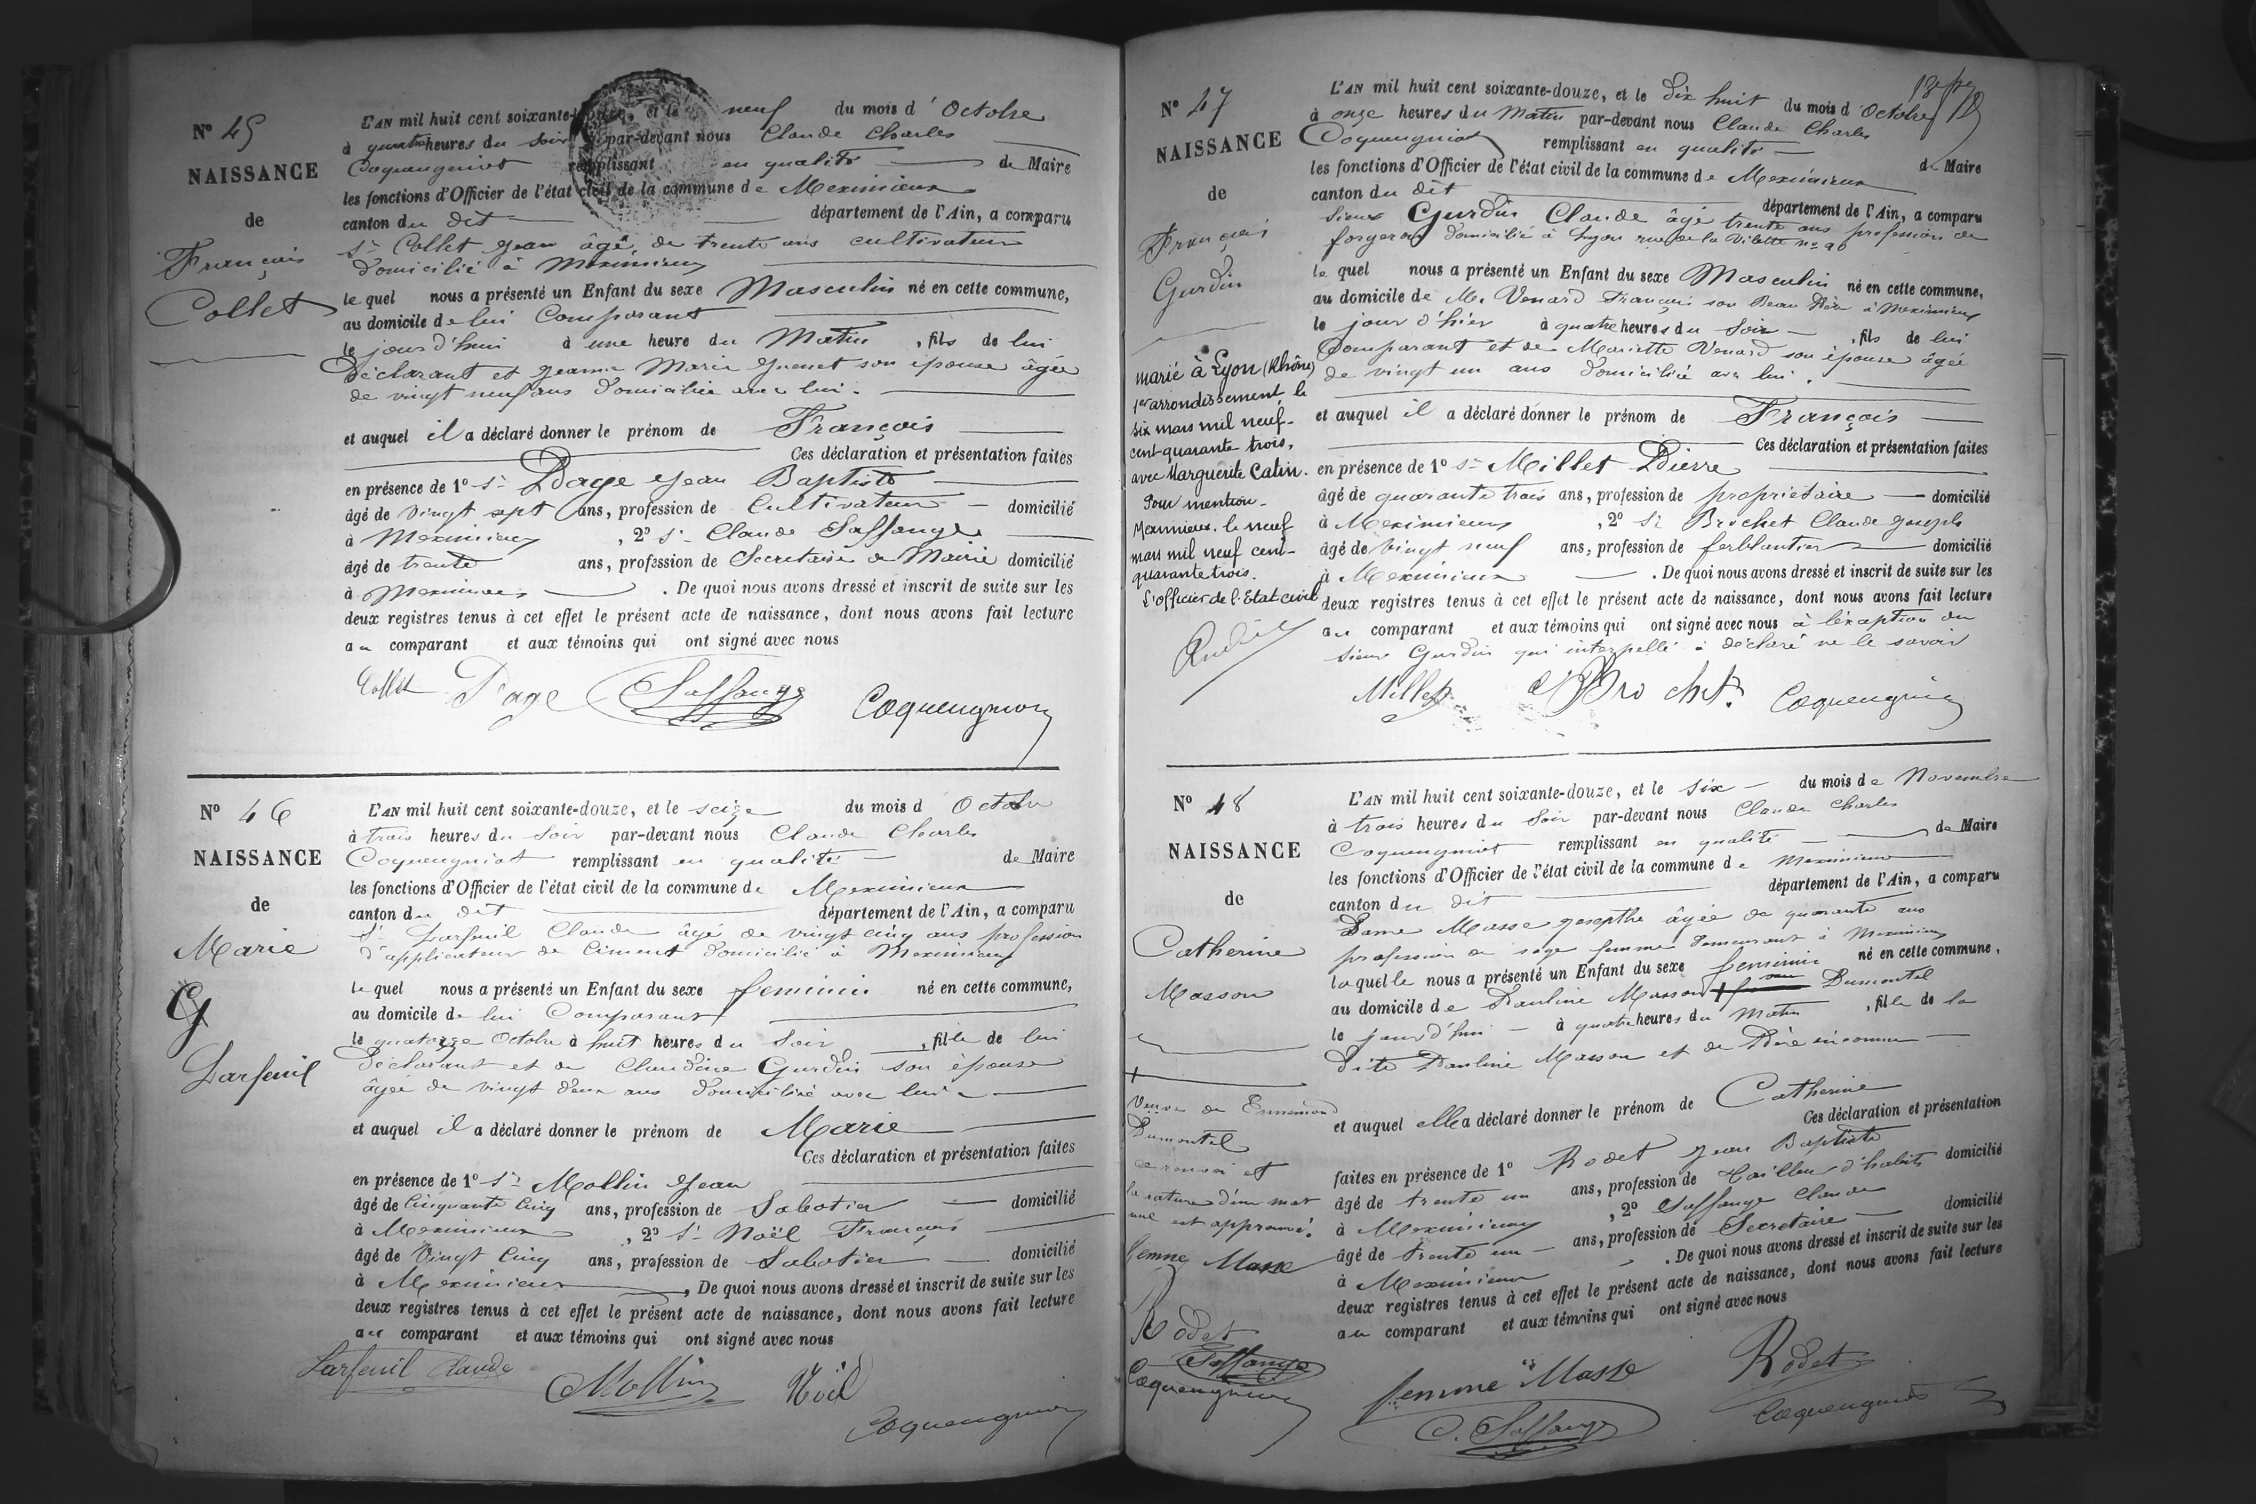 N° 45
NAISSANCE
de
François
Collet
L'AN mil huit cent soixante-douze, et le neuf du mois d'Octobre
à quatre heures du soir par-devant nous Claude Charles
Coquengniot remplissant en qualité de Maire
les fonctions d'Officier de l'état civil de la commune de Meximieux
canton du dit département de l'Ain, a comparu
Sr Collet Jean âgé de trente ans cultivateur
domicilié à Meximieux
le quel nous a présenté un Enfant du sexe Masculin né en cette commune,
au domicile de lui Comparant
le jour d'hui à une heure du Matin, fils de lui
Déclarant et Jeanne Marie son épouse âgée
de vingt neuf ans domiciliée avec lui.
et auquel il a déclaré donner le prénom de François
Ces déclaration et présentation faites
en présence de 1° Sr Page Jean Baptiste
âgé de vingt sept ans, profession de Cultivateur domicilié
à Meximieux, 2° Sr Claude Saffange
âgé de trente ans, profession de Secrétaire de Mairie domicilié
à Meximieux. De quoi nous avons dressé et inscrit de suite sur les
deux registres tenus à cet effet le présent acte de naissance, dont nous avons fait lecture
au comparant et aux témoins qui ont signé avec nous
Collet Page Saffange Coquengniot
N° 46
NAISSANCE
de
Marie
G
Larfeuil
L'AN mil huit cent soixante-douze, et le seize du mois d Octobre
à trois heures du Soir par-devant nous Claude Charles
Coquengniot remplissant en qualité de Maire
les fonctions d'Officier de l'état civil de la commune de Meximieux
canton du dit département de l'Ain, a comparu
Sr Larfeuil Claude âgé de vingt cinq ans profession
d'applicateur de Ciment domicilié à Meximieux
le quel nous a présenté un Enfant du sexe féminin né en cette commune,
au domicile de lui Comparant
le quatorze Octobre à huit heures du Soir, fille de lui
Déclarant et de Claudine Gurdin son épouse
âgée de vingt deux ans domiciliée avec lui
et auquel il a déclaré donner le prénom de Marie
Ces déclaration et présentation faites
en présence de 1° Sr Mollin Jean
âgé de Cinquante Cinq ans, profession de Sabotier domicilié
à Meximieux, 2° Sr Noël François
âgé de Vingt Cinq ans, profession de Sabotier domicilié
à Meximieux, De quoi nous avons dressé et inscrit de suite sur les
deux registres tenus à cet effet le présent acte de naissance, dont nous avons fait lecture
au comparant et aux témoins qui ont signé avec nous
Larfeuil Claude Mollin Noël
Coquengniot
N° 47
NAISSANCE
de
François
Gurdin
marié à Lyon (Rhône)
1er arrondissement, le
six mars mil neuf-
cent quarante trois,
avec Marguerite Catin.
Pour mention.
Meximieux, le neuf
mars mil neuf cent-
quarante trois.
L'officier de l'Etat civil
L'AN mil huit cent soixante-douze, et le dix huit du mois d'Octobre
à onze heures du Matin par-devant nous Claude Charles
Coquengniot remplissant en qualité de Maire
les fonctions d'Officier de l'état civil de la commune de Meximieux
canton du dit département de l'Ain, a comparu
Sieur Gurdin Claude âgé trente ans profession de
forgeron domicilié à Lyon rue de la Vilette n° 90
le quel nous a présenté un Enfant du sexe Masculin né en cette commune,
au domicile de Mr Venard François son Beau Père à Meximieux
le jour d'hier à quatre heures du Soir, fils de lui
Comparant et de Mariette Venard son épouse âgée
de vingt un ans domiciliée avec lui.
et auquel il a déclaré donner le prénom de François
Ces déclaration et présentation faites
en présence de 1° Sr Millet Pierre
âgé de quarante trois ans, profession de propriétaire domicilié
à Meximieux, 2° Sr Brochet Claude Joseph
âgé de Vingt neuf ans, profession de ferblantier domicilié
à Meximieux. De quoi nous avons dressé et inscrit de suite sur les
deux registres tenus à cet effet le présent acte de naissance, dont nous avons fait lecture
au comparant et aux témoins qui ont signé avec nous à l'exception du
sieur Gurdin qui interpellé a déclaré ne le savoir
Millet Brochet Coquengniot
N° 48
NAISSANCE
de
Catherine
Masson
Veuve de Ennemond
Dumontel
ce renvoi et
la rature d'un mot
nul est approuvé.
femme Masse
Rodet
Saffange
Coquengniot
L'AN mil huit cent soixante-douze, et le six du mois de Novembre
à trois heures du Soir par-devant nous Claude Charles
Coquengniot remplissant en qualité de Maire
les fonctions d'Officier de l'état civil de la commune de Meximieux
canton du dit département de l'Ain, a comparu
Dame Masse Josepthe âgée de quarante ans
profession de sage femme demeurant à Meximieux
laquelle nous a présenté un Enfant du sexe féminin né en cette commune,
au domicile de Pauline Masson Dumontel
le jour d'hui à quatre heures du Matin, fille de la
Dite Pauline Masson et de Père inconnu
et auquel elle a déclaré donner le prénom de Catherine
Ces déclaration et présentation
faites en présence de 1° Rodet Jean Baptiste
âgé de trente un ans, profession de Tailleur d'habits domicilié
à Meximieux, 2° Saffange Claude
âgé de trente un ans, profession de Secrétaire domicilié
à Meximieux. De quoi nous avons dressé et inscrit de suite sur les
deux registres tenus à cet effet le présent acte de naissance, dont nous avons fait lecture
au comparant et aux témoins qui ont signé avec nous
femme Masse Rodet
C. Saffange Coquengniot